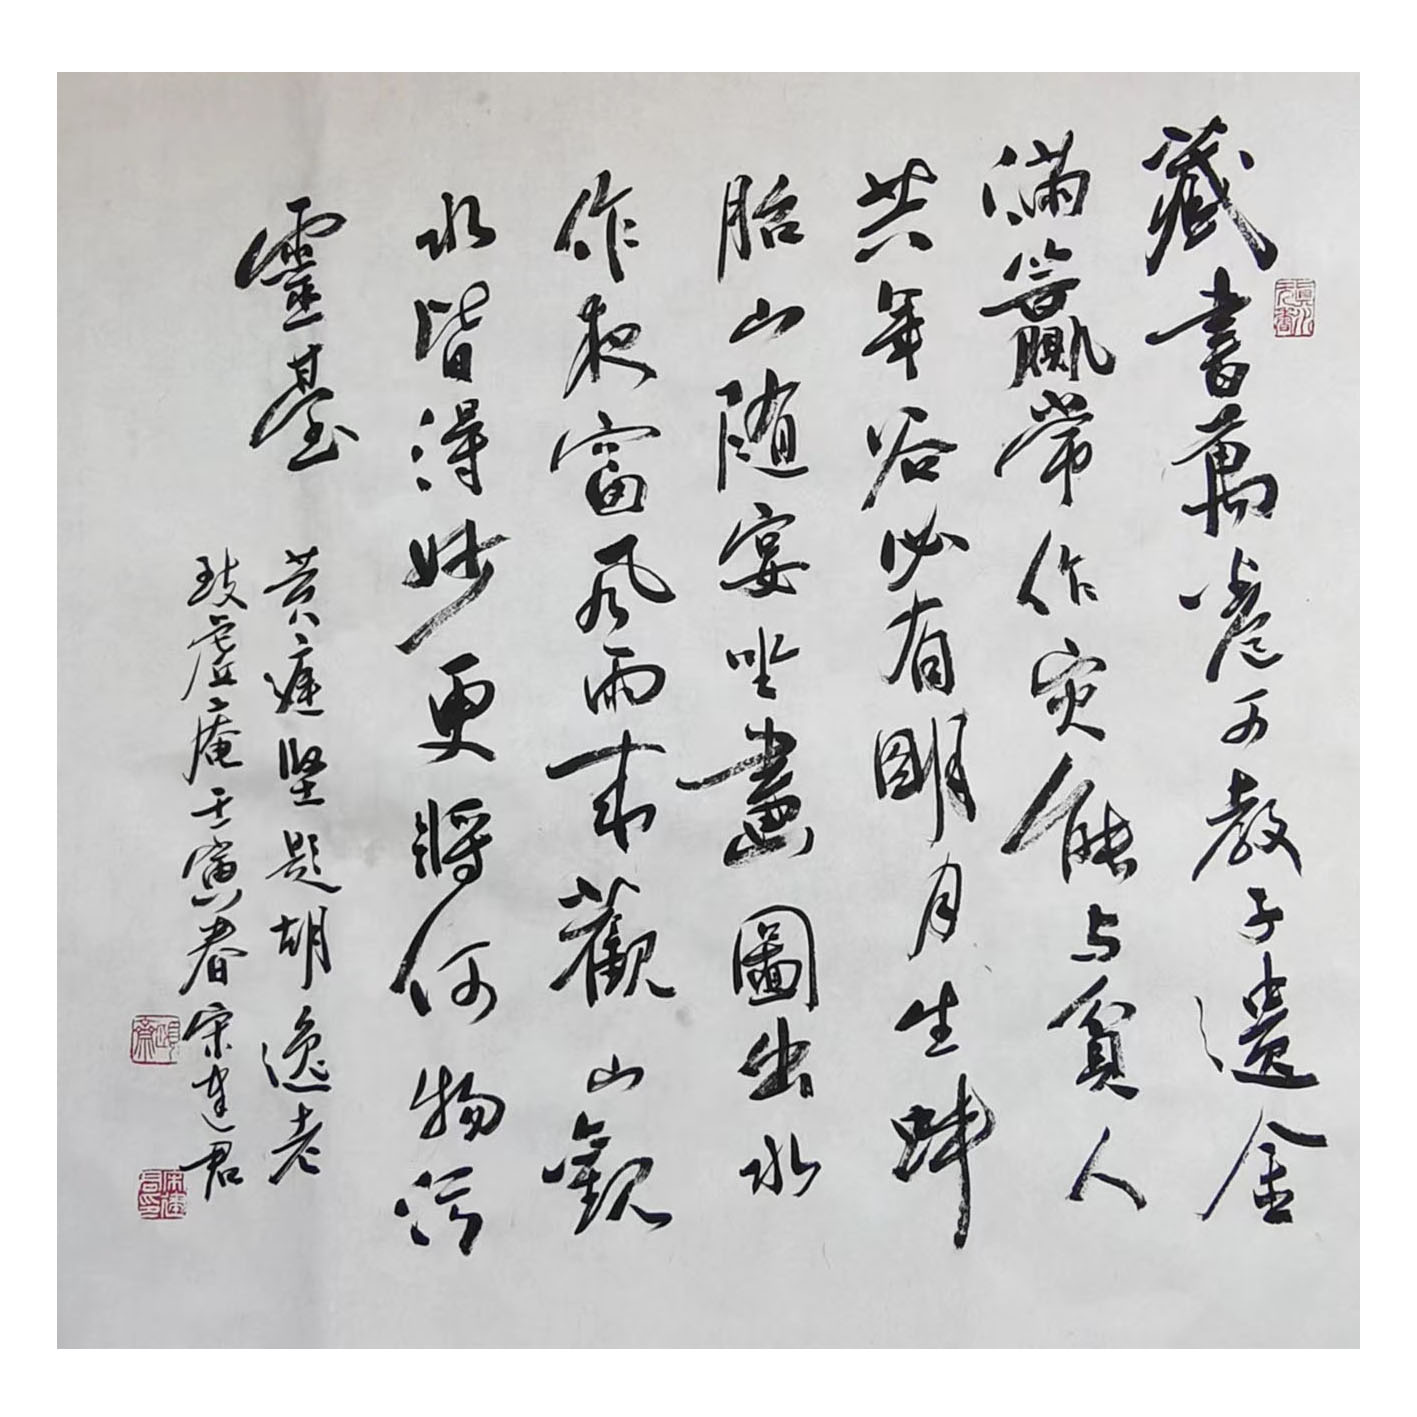 藏書萬卷可教子遺金
滿籯常作灾能与貧人
共年谷必有明月生蚌
胎山随宴坐畫圖出水
作夜窗风雨來觀山觀
水皆得妙更將何物污
靈臺
黄庭堅题胡逸老
致虚庵壬寅春宋建君